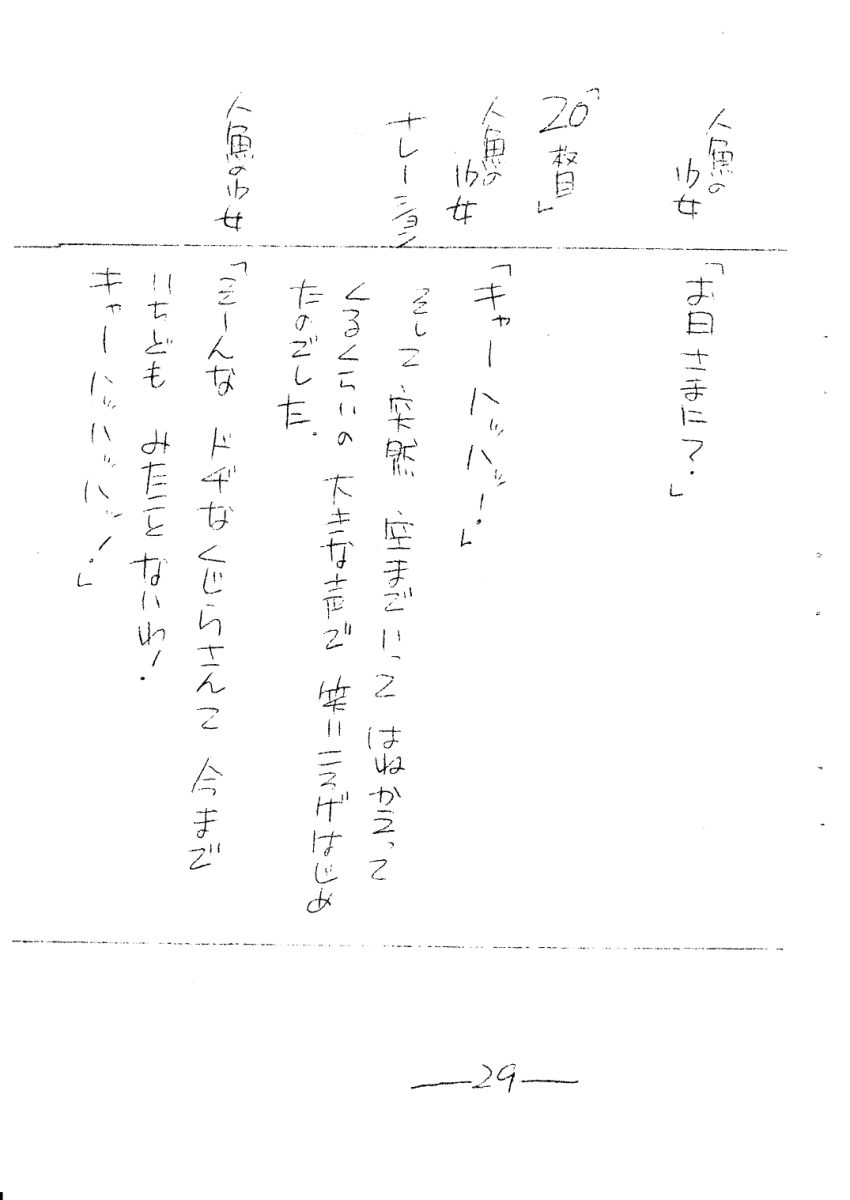 人魚の
少女
「お日さまに?」
「20枚目」
人魚の
少女
「キャーハッハッ!」
ナレーション
そして 突然 空まで いって はねかえって
くるくらいの 大きな声で 笑いころげはじめ
たのでした.
人魚の少女
「そーんな ドヂな くじらさんて 今まで
いちども みたこと ないわ!
キャーハッハッハッ!」
—29—